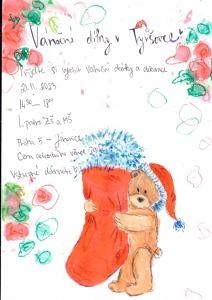 Vánoční dílny v Tyršovce
Přijďte si vyrobit vánoční dárky a dekorace
21.11.2023
14:30 – 18:00
1. patro ZŠ a MŠ
Praha 5 – Jinonice
Cena adventního věnce
Vstupné dobrovolné